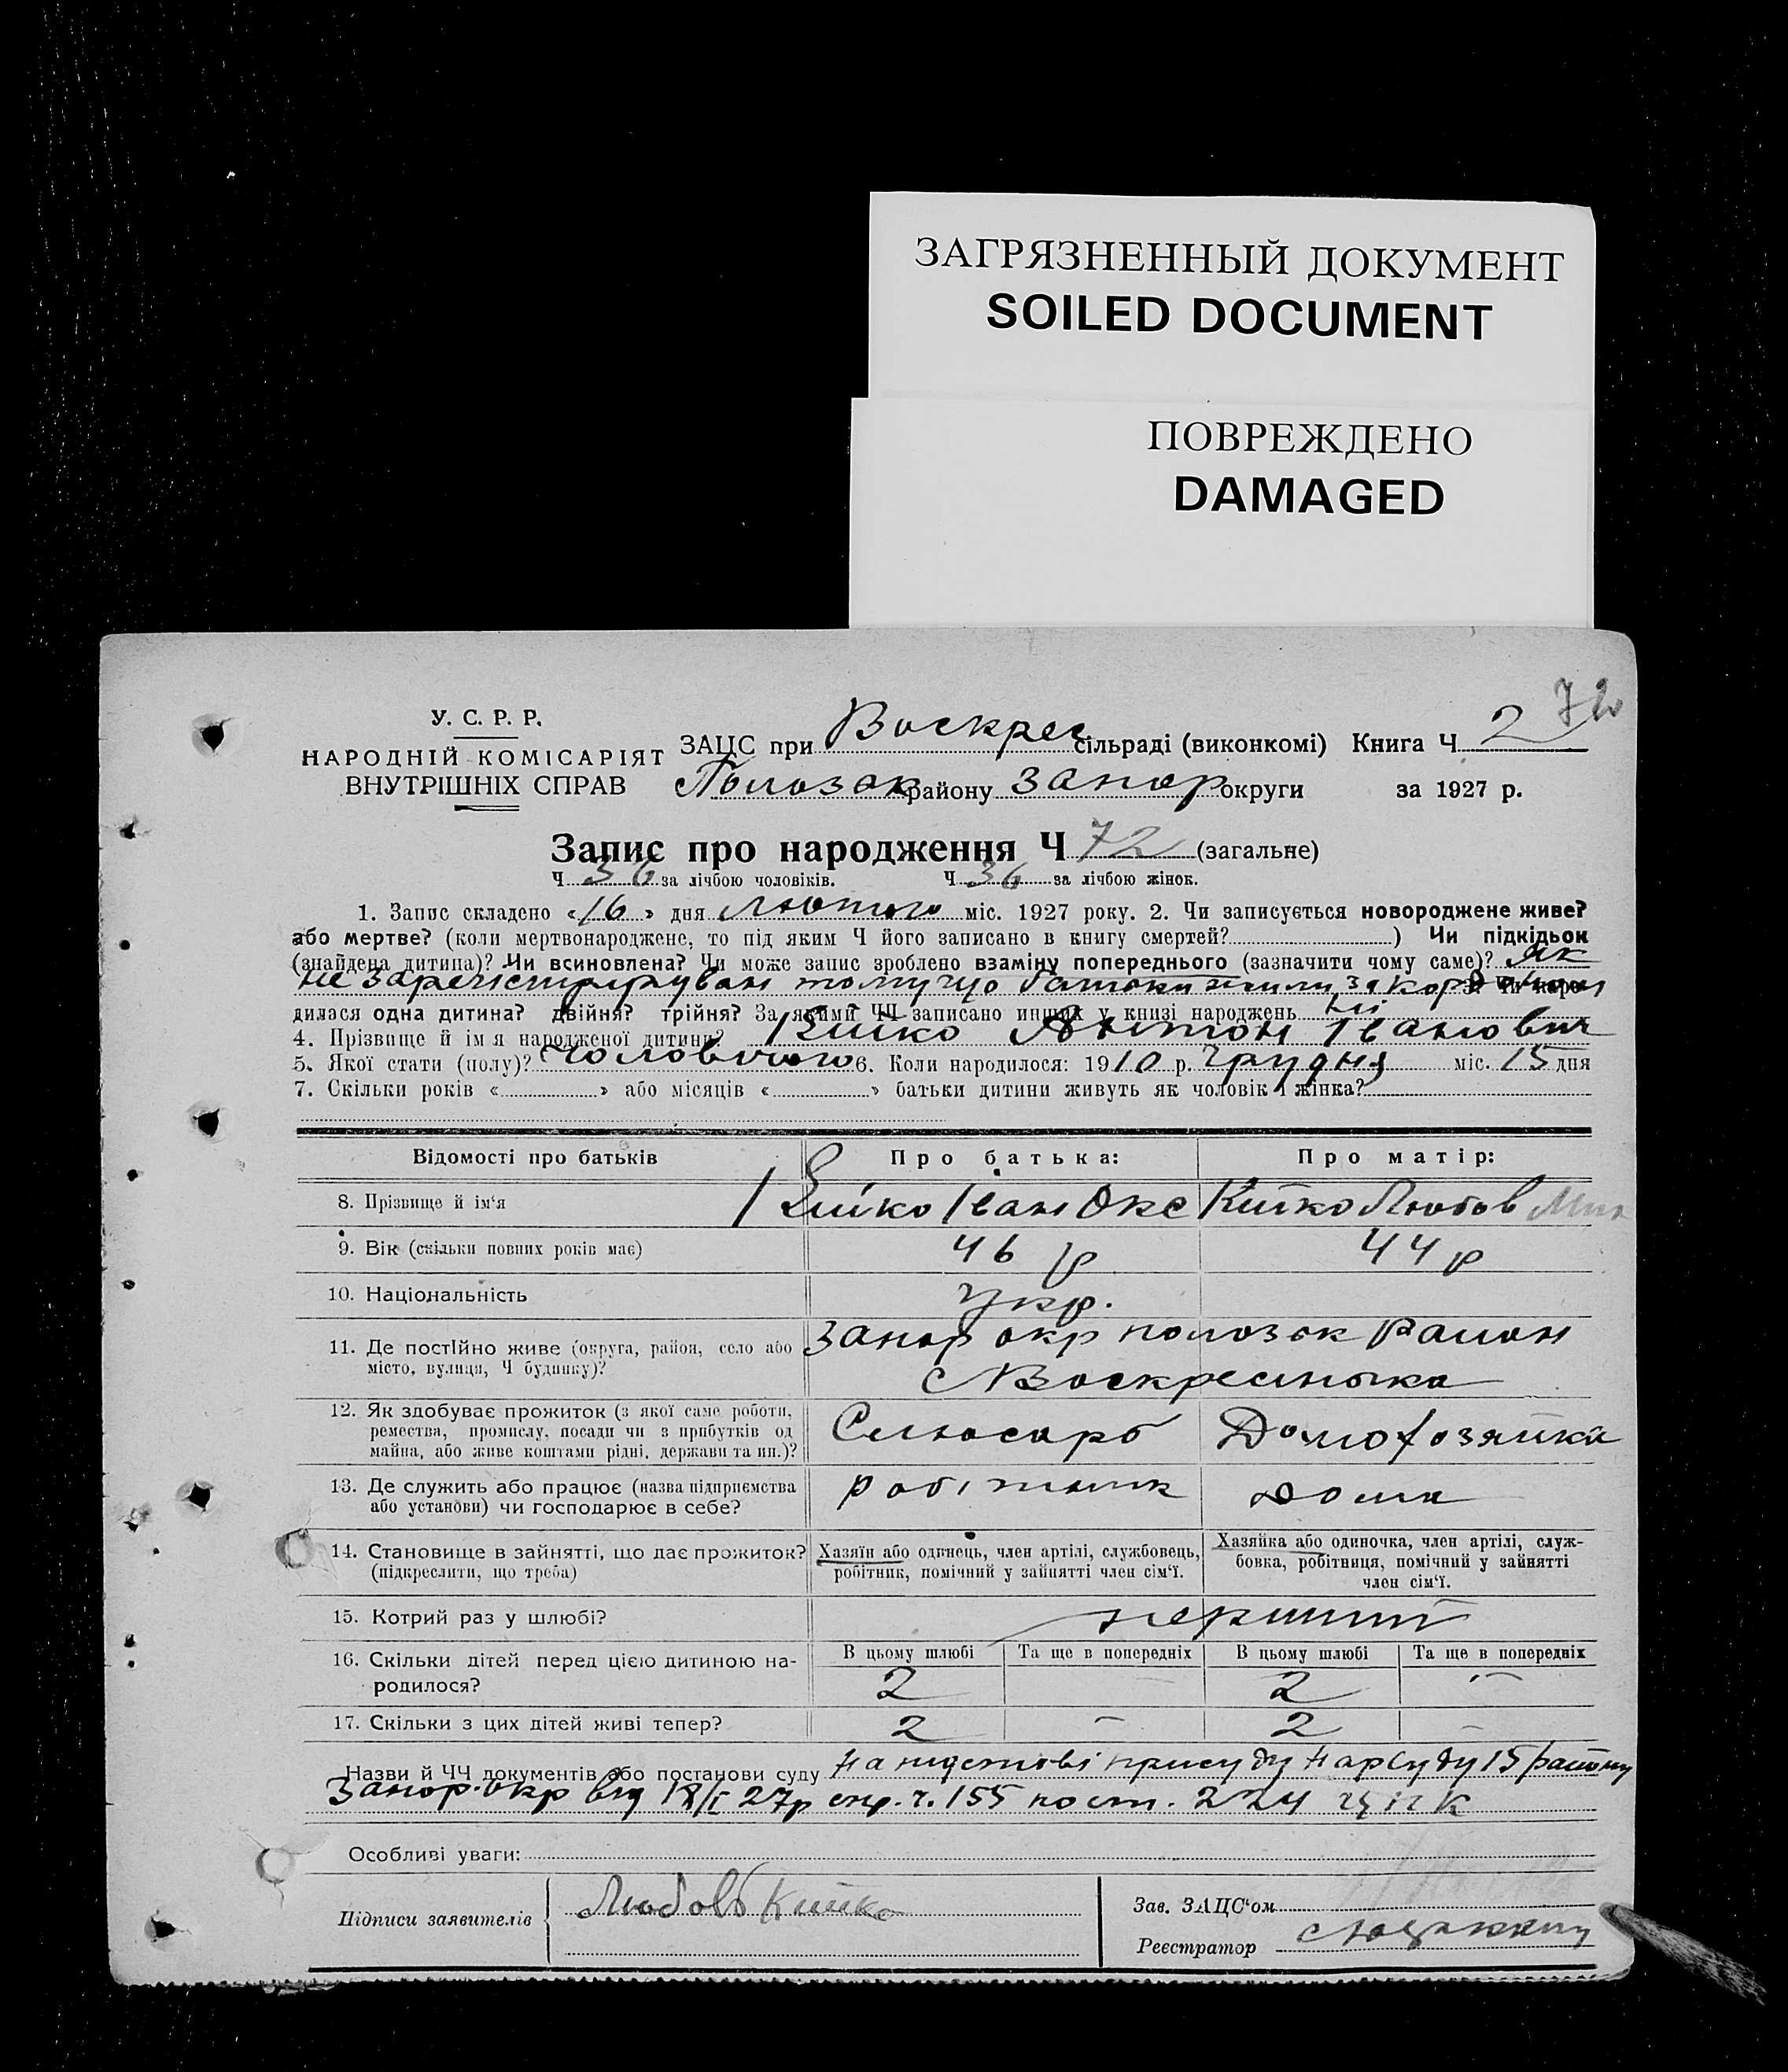 ЗАГРЯЗНЕННЫЙ ДОКУМЕНТ
SOILED DOCUMENT
ПОВРЕЖДЕНО
DAMAGED
72
У. С. Р. Р.
НАРОДНІЙ КОМІСАРІЯТ
ВНУТРІШНІХ СПРАВ
ЗАЦС при Воскрес сільраді (виконкомі) Книга Ч 2
Полозак району Запор округи за 1927 р.
Запис про народження Ч 72 (загальне)
Ч 36 за лічбою чоловіків. Ч 36 за лічбою жінок.
1. Запис складено «16» дня Лютого міс. 1927 року. 2. Чи записується новороджене живе?
або мертве? (коли мертвонароджене, то під яким Ч його записано в книгу смертей? ) Чи підкідьок
(знайдена дитина)? Чи всиновлена? Чи може запис зроблено взаміну попереднього (зазначити чому саме)? Як
не зареістрируван тому що батьки жили за кордоном 3. Чи наро-
дилася одна дитина? двійня? трійня? За якими ЧЧ записано инших у книзі народжень
4. Прізвище й ім'я народженої дитини? Кийко Антон Іванович
5. Якої стати (полу)? Чоловічого 6. Коли народилося: 1910 р. Грудня міс. 15 дня
7. Скільки років « » або місяців « » батьки дитини живуть як чоловік і жінка?
Відомості про батьків Про батька: Про матір:
8. Прізвище й ім'я Кийко Іван Окс Кийко Любов
9. Вік (скільки повних років має) 46 р 44 р
10. Національність Укр.
11. Де постійно живе (округа, район, село або місто, вулиця, Ч будинку)? Запор окр полозак Район
с Воскресинька
12. Як здобуває прожиток (з якої саме роботи, Слюсарь Домохозяйка
ремества, промислу, посади чи з прибутків од
майна, або живе коштами рідні, держави та ин.)?
13. Де служить або працює (назва підприємства робітник дома
або установи) чи господарює в себе?
14. Становище в зайнятті, що дає прожиток? Хазяїн або одинець, член артілі, службовець, Хазяйка або одиночка, член артілі, служ-
(підкреслити, що треба) робітник, помічний у зайнятті член сім'ї. бовка, робітниця, помічний у зайнятті
член сім'ї.
15. Котрий раз у шлюбі? перший
16. Скільки дітей перед цією дитиною на- В цьому шлюбі Та ще в попередніх В цьому шлюбі Та ще в попередніх
родилося? 2 — 2 —
17. Скільки з цих дітей живі тепер? 2 — 2 —
Назви й ЧЧ документів або постанови суду На підставі присуду Нарсуду 15 району
Запор. окр від 18/І 27р спр. ч. 155 пост. 224 ЦПК
Особливі уваги:
Підписи заявителів Любовь Кийко Зав. ЗАЦС'ом
Реєстратор